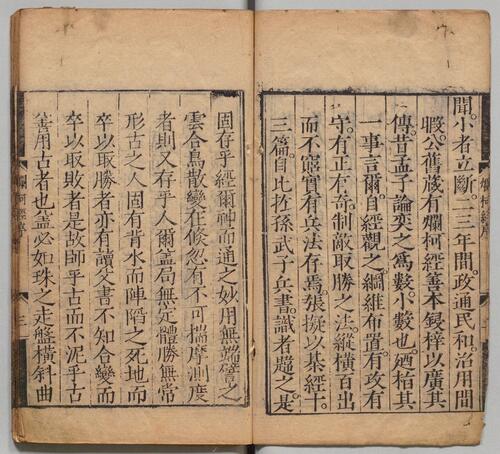 聞。小者立斷。二三年間。政通民和。治用間
暇。公舊蔵有爛柯經善本鋟梓以廣其
傳。昔孟子論奕之爲數。小數也。廼楷其
一事言爾。自經觀之。綱維布置。有攻有
守。有正有奇。制敵取勝之法。縱橫百出
而不窮。實有兵法存焉。張擬以棊經十
三篇。自比扵孫武子兵書。識者韙之。是
固存乎經爾神而通之妙用無端譬之
雲合鳥散變在倐忽有不可揣摩測度
者則又存乎人爾盖局無定體勝無常
形古之人固有背水而陣陷之死地而
卒以取勝者亦有讀父書不知合變而
卒以取敗者是故師乎古而不泥乎古
善用古者也盖必如珠之走盤橫斜曲
爛柯經序
三